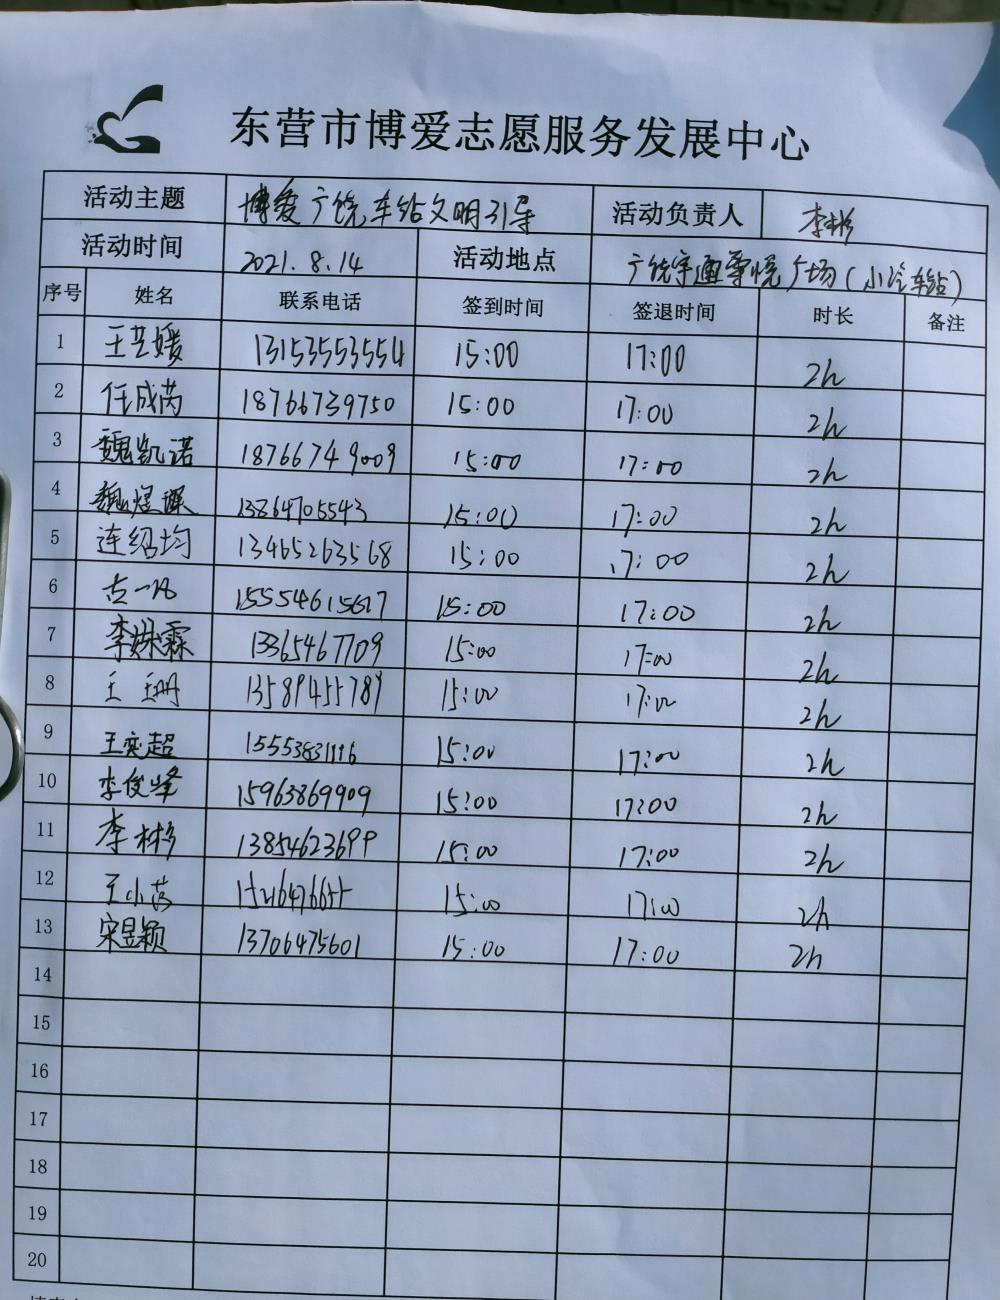 东营市博爱志愿服务发展中心
活动主题 博爱广饶车站文明引导 活动负责人 李彬
活动时间 2021.8.14 活动地点 广饶宇通尊悦广场(小汽车站)
序号 姓名 联系电话 签到时间 签退时间 时长 备注
1 王艺媛 13153553554 15:00 17:00 2h
2 任成芮 18766739750 15:00 17:00 2h
3 魏凯诺 18766749009 15:00 17:00 2h
4 魏煜 13864705543 15:00 17:00 2h
5 连绍均 13465263568 15:00 17:00 2h
6 古一凡 15:00 17:00 2h
7 李姝霖 13365467709 15:00 17:00 2h
8 王珊 13589455789 15:00 17:00 2h
9 王奕超 15553831116 15:00 17:00 2h
10 李俊峰 15963869909 15:00 17:00 2h
11 李彬 13854623699 15:00 17:00 2h
12 王小 15216476655 15:00 17:00 2h
13 宋昱颖 13706475601 15:00 17:00 2h
14
15
16
17
18
19
20